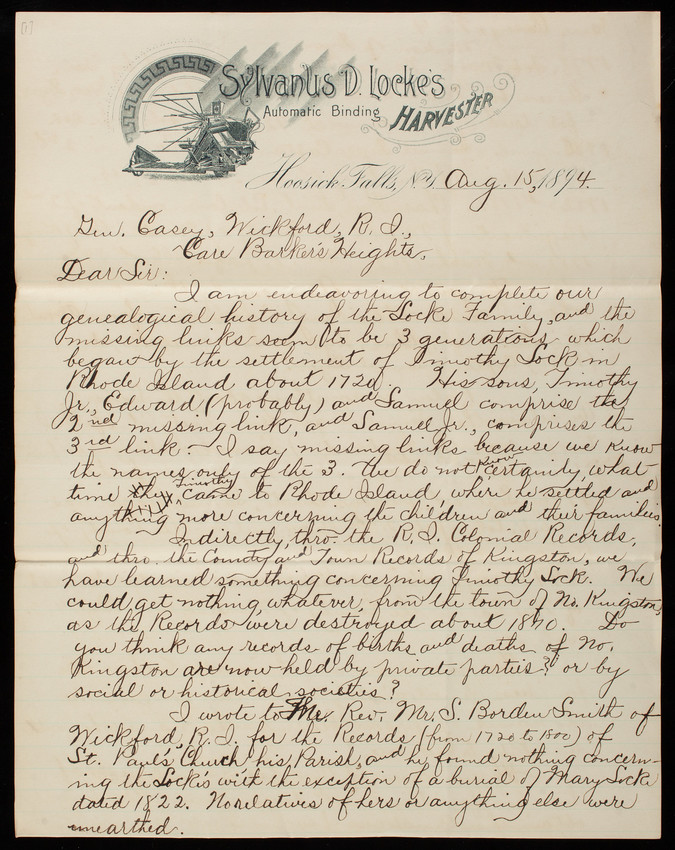 Sylvanus D. Locke's
Automatic Binding HARVESTER
Hoosick Falls, N.Y. Aug. 15, 1894.
Gen. Casey, Wickford, R. I.,
Care Barker's Heights,
Dear Sir:
I am endeavoring to complete our
genealogical history of the Locke Family, and the
missing links seem to be 3 generations which
began by the settlement of Timothy Lock in
Rhode Island about 1720. His sons, Timothy
Jr., Edward (probably) and Samuel comprise the
2nd missing link, and Samuel Jr., comprises the
3rd link. I say missing links because we know
the names only of the 3. We do not know certainly, what
time Timothy came to Rhode Island, where he settled and
anything more concerning the children and their families.
Indirectly, thro. the R. I. Colonial Records,
and thro. the County and Town Records of Kingston, we
have learned something concerning Timothy Lock. We
could get nothing whatever, from the town of No. Kingston,
as the Records were destroyed about 1870. Do
you think any records of births and deaths of No.
Kingston are now held by private parties? or by
social or historical societies?
I wrote to Rev. Mr. S. Borden Smith of
Wickford, R. I. for the Records (from 1720 to 1800) of
St. Paul's Church his Parish, and he found nothing concern-
ing the Lock's with the exception of a burial of Mary Locke
dated 1822. No relatives of hers or anything else were
unearthed.